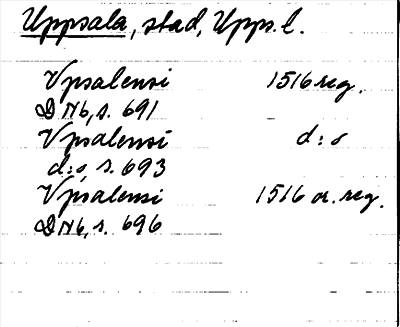 Uppsala, stad, Upps. l.
Vpsalensi 1516 reg.
DN6, s. 691
Vpsalensi d:o
d:o, s. 693
Vpsalensi 1516 a. reg.
DN6, s. 696